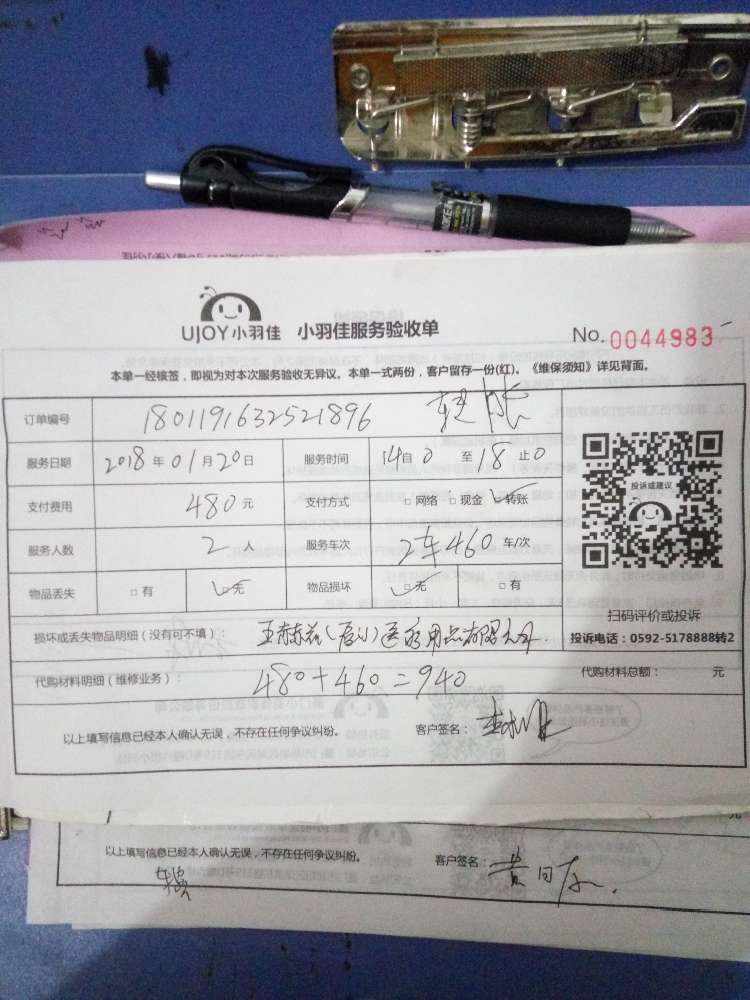 UJOY小羽佳 小羽佳服务验收单 No. 0044983
本单一经核签，即视为对本次服务验收无异议。本单一式两份，客户留存一份(红)。《维保须知》详见背面。
订单编号 1801191632521896 转账
服务日期 2018 年 01 月 20 日 服务时间 14 自 0 至 18 止 0
支付费用 480 元 支付方式 □ 网络 □ 现金 ☑ 转账
投诉或建议
服务人数 2 人 服务车次 2车460 车/次
物品丢失 □ 有 ☑ 无 物品损坏 ☑ 无 □ 有
扫码评价或投诉
损坏或丢失物品明细（没有可不填）： 医疗用品有限公司
投诉电话：0592-5178888转2
代购材料明细（维修业务）： 480+460=940 代购材料总额： 元
以上填写信息已经本人确认无误，不存在任何争议纠纷。 客户签名：
以上填写信息已经本人确认无误，不存在任何争议纠纷。 客户签名：